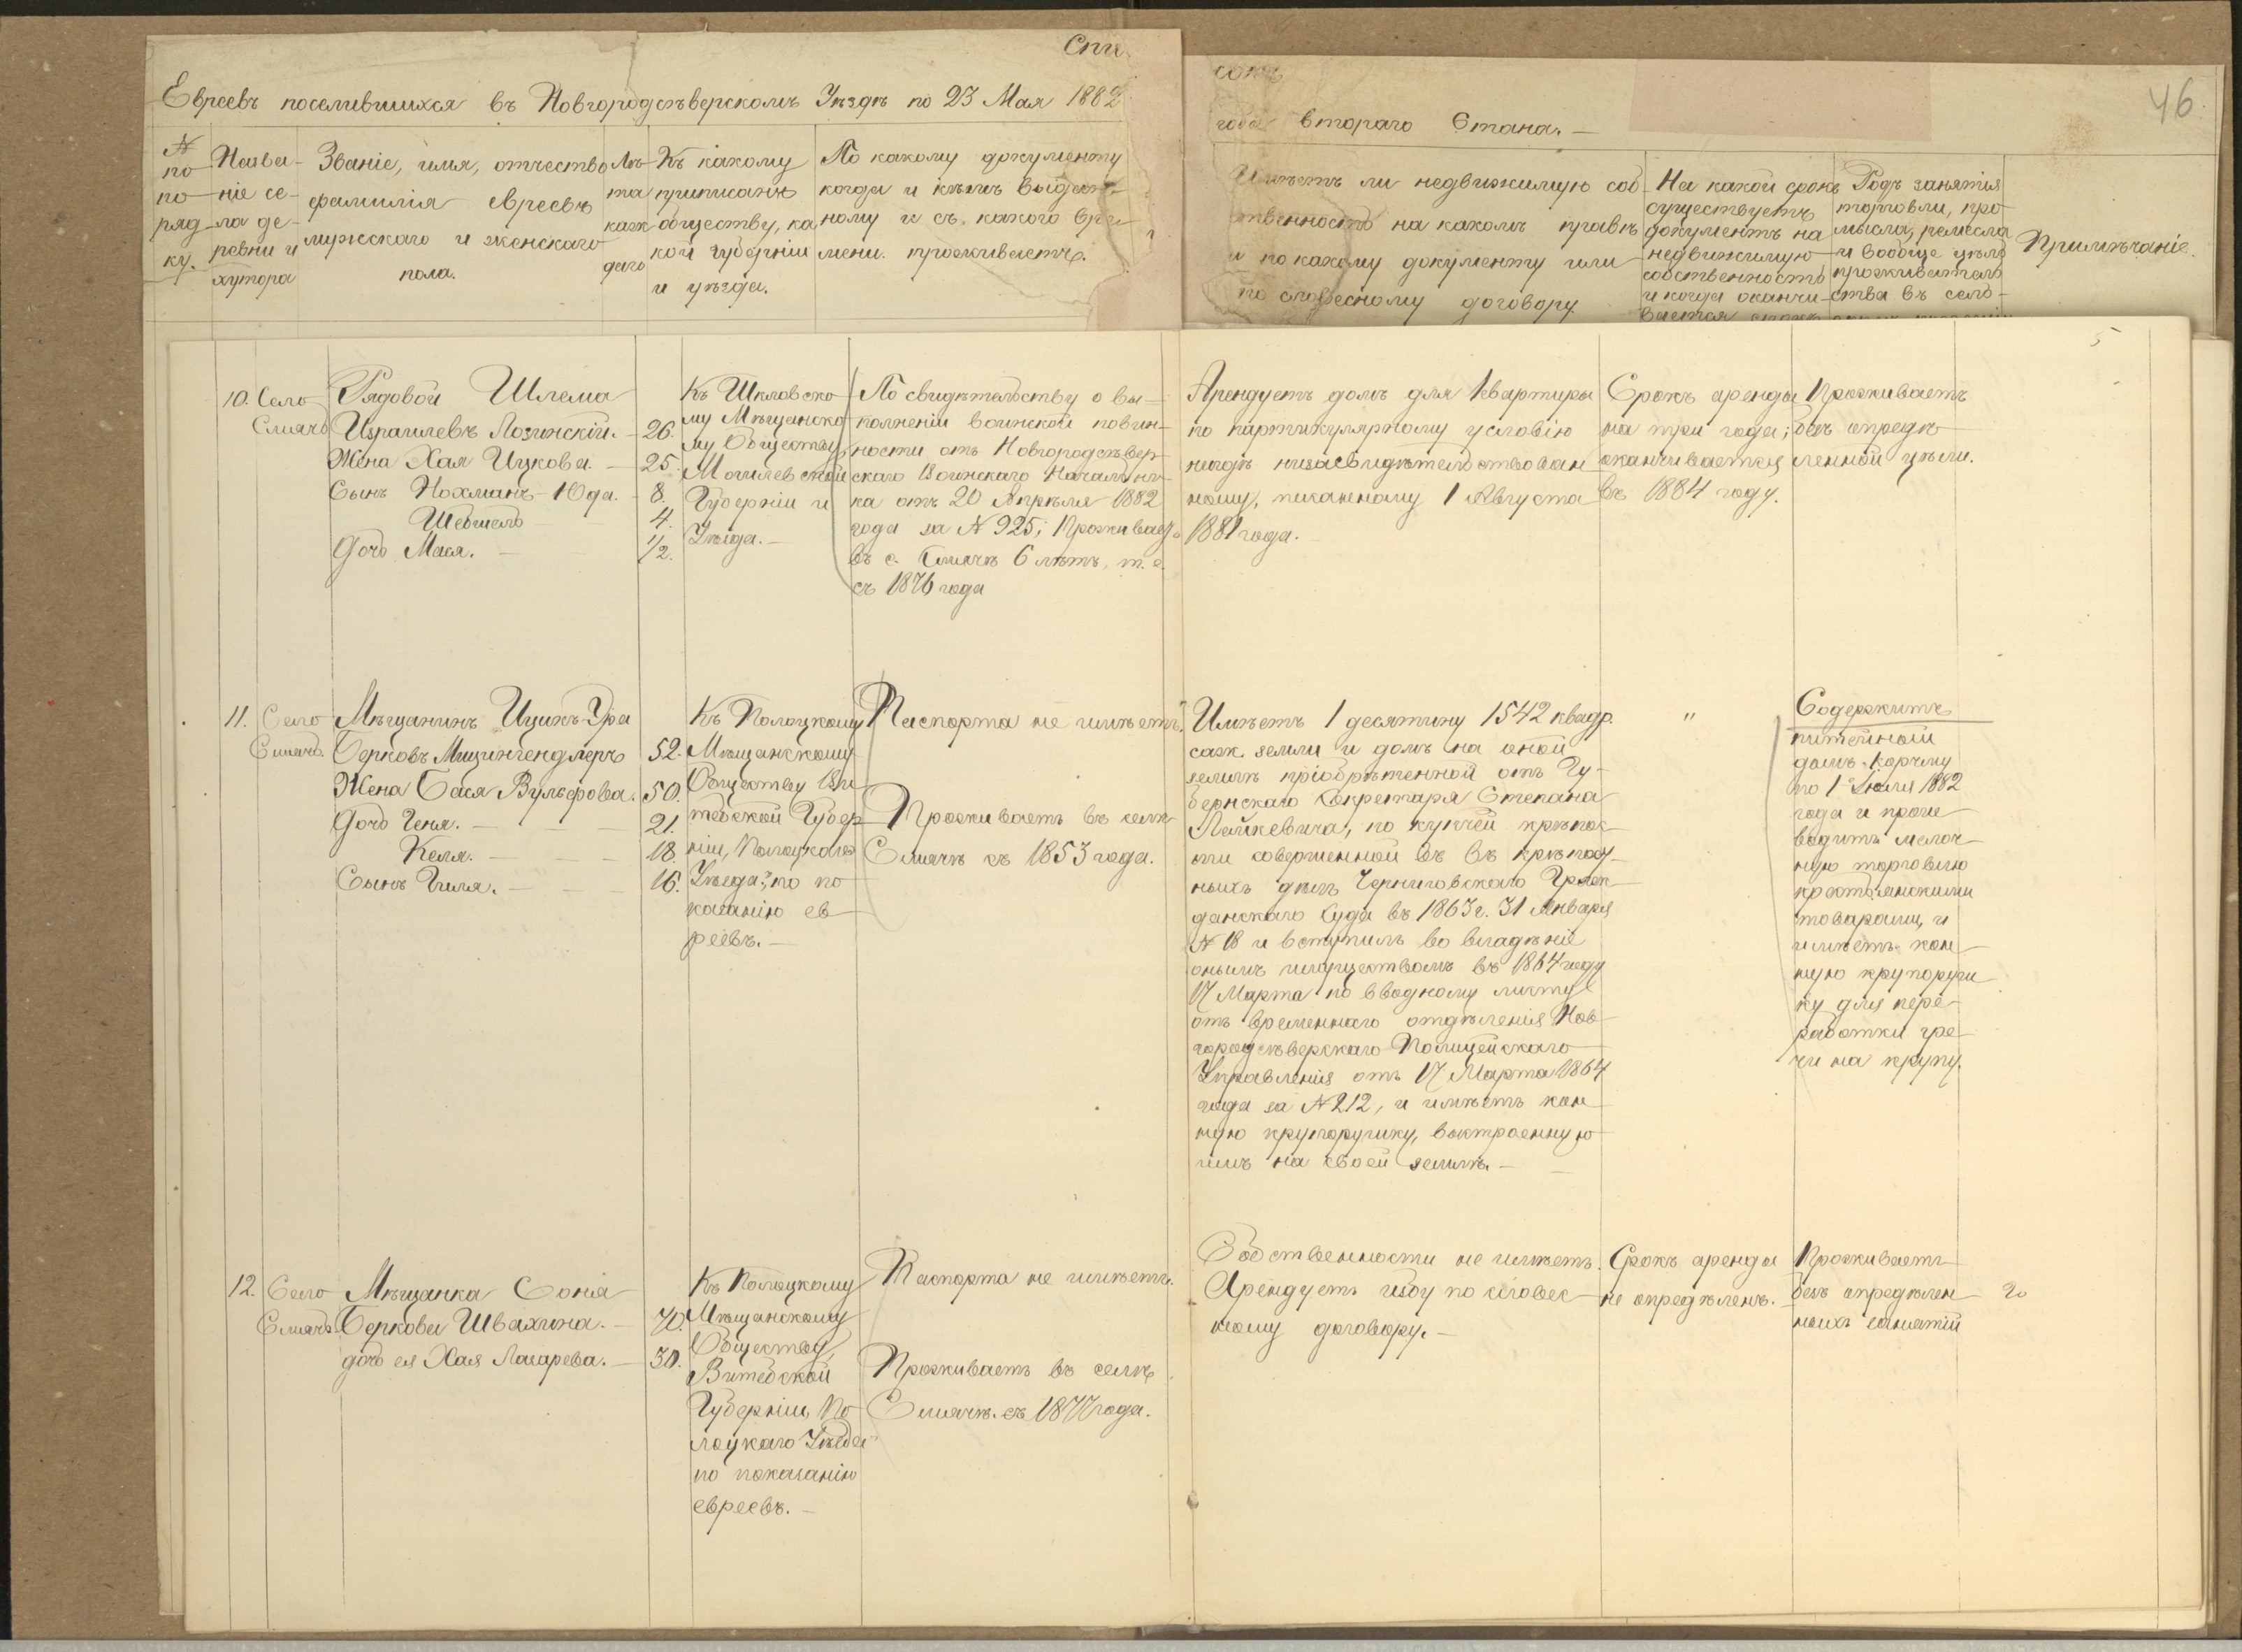 Спи
сокъ
46
Евреевъ поселившихся въ Новгородсѣверскомъ Уѣздѣ по 23 Мая 1882
года втораго Стана. —
№
по
по-
ряд-
ку.
Назва-
ніе се-
ла де-
ревни и
хутора
Званіе, имя, отчество
фамилія евреевъ
мужскаго и женскаго
пола.
Лѣ-
та
каж
даго
Къ какому
приписанъ
обществу, ка
кой губерніи
и уѣзда.
По какому документу
когда и кѣмъ выдан-
ному и съ какого вре-
мени проживаетъ.
Имѣетъ ли недвижимую соб-
ственность на какомъ правѣ
и по какому документу или
по словесному договору
На какой срокъ
существуетъ
документъ на
недвижимую
собственность
и когда оканчи-
вается срокъ
Родъ занятія
торговли, про
мысла, ремесла
и вообще цѣль
проживатель
ства въ сель-
Примѣчаніе.
10. Село
Смячъ
Рядовой Шлема
Израилевъ Лозинскій. — 26.
Жена Хая Ицкова. — 25.
Сынъ Нохманъ-Юда. — 8.
Шевшель — 4.
Дочь Мася. — 1/2.
Къ Шкловско
му Мѣщанско
му Обществу,
Могилевской
Губерніи и
Уѣзда. —
По свидѣтельству о вы-
полненіи воинской повин-
ности отъ Новгородсѣвер-
скаго Воинскаго Начальни-
ка отъ 20 Апрѣля 1882
года за № 925; Проживаетъ
въ с. Смячѣ 6 лѣтъ, т. е.
съ 1876 года
Арендуетъ домъ для квартиры
по партикулярному условію
нигдѣ незасвидѣтельствован
ному, писанному 1 Августа
1881 года. —
Срокъ аренды
на три года;
оканчивается
въ 1884 году.
Проживаетъ
безъ опредѣ
ленной цѣли.
11. Село
Смячъ.
Мѣщанинъ Ицикъ-Ура
Берковъ Мишингендлеръ 52.
Жена Бася Вульфова. 50.
Дочь Геня. — 21.
Келя. — 18.
Сынъ Гиля. — 16.
Къ Полоцкому
Мѣщанскому
Обществу Ви
тебской Губер
ніи, Полоцкаго
Уѣзда, по по
казанію ев
реевъ. —
Паспорта не имѣетъ.
Проживаетъ въ селѣ
Смячѣ съ 1853 года.
Имѣетъ 1 десятину 1542 квадр.
саж. земли и домъ на оной
землѣ пріобрѣтенной отъ Гу-
бернскаго Секретаря Степана
по купчей крѣпос-
ти совершенной въ въ крѣпост-
ныхъ дѣлъ Черниговскаго Граж-
данскаго Суда въ 1863 г. 31 Января
№ 18 и вступилъ во владѣніе
онымъ имуществомъ въ 1864 году
17 Марта по вводному листу
отъ временнаго отдѣленія Нов-
городсѣверскаго Полицейскаго
Управленія отъ 17 Марта 1864
года за № 212, и имѣетъ кон
ную крупорушку, выстроенную
имъ на своей землѣ. —
"
Содержитъ
питейный
домъ-корчму
по 1е Іюля 1882
года и произ
водитъ мелоч-
ную торговлю
крестьянскими
товарами, и
имѣетъ кон-
ную крупоруш
ку для пере-
работки гре-
чи на крупу.
12. Село
Смячъ.
Мѣщанка Соня
Беркова Швахина. — 70.
дочь ея Хая Лазарева. — 30.
Къ Полоцкому
Мѣщанскому
Обществу,
Витебской
Губерніи, По
лоцкаго Уѣзда
по показанію
евреевъ. —
Паспорта не имѣетъ.
Проживаетъ въ селѣ
Смячѣ съ 1877 года.
Собственности не имѣетъ.
Арендуетъ избу по словес-
ному договору. —
Срокъ аренды
не опредѣленъ. —
Проживаетъ
безъ опредѣлен-
ныхъ занятій